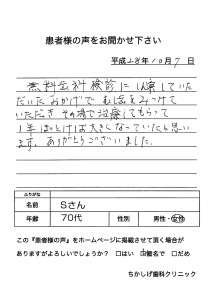 患者様の声をお聞かせ下さい
平成28年10月7日
無料歯科検診に
だいたおかげでむし歯をみつけて
いただき その場で治療してもらって
1年ほっとけば大きくなっていたと思い
ます。ありがとうございました。
ふりがな
名前 Sさん
年齢 70代 性別 男性・女性
この『患者様の声』をホームページに掲載させて頂く場合が
ありますがよろしいでしょうか? □はい ☑匿名で □だめ
ちかしげ歯科クリニック